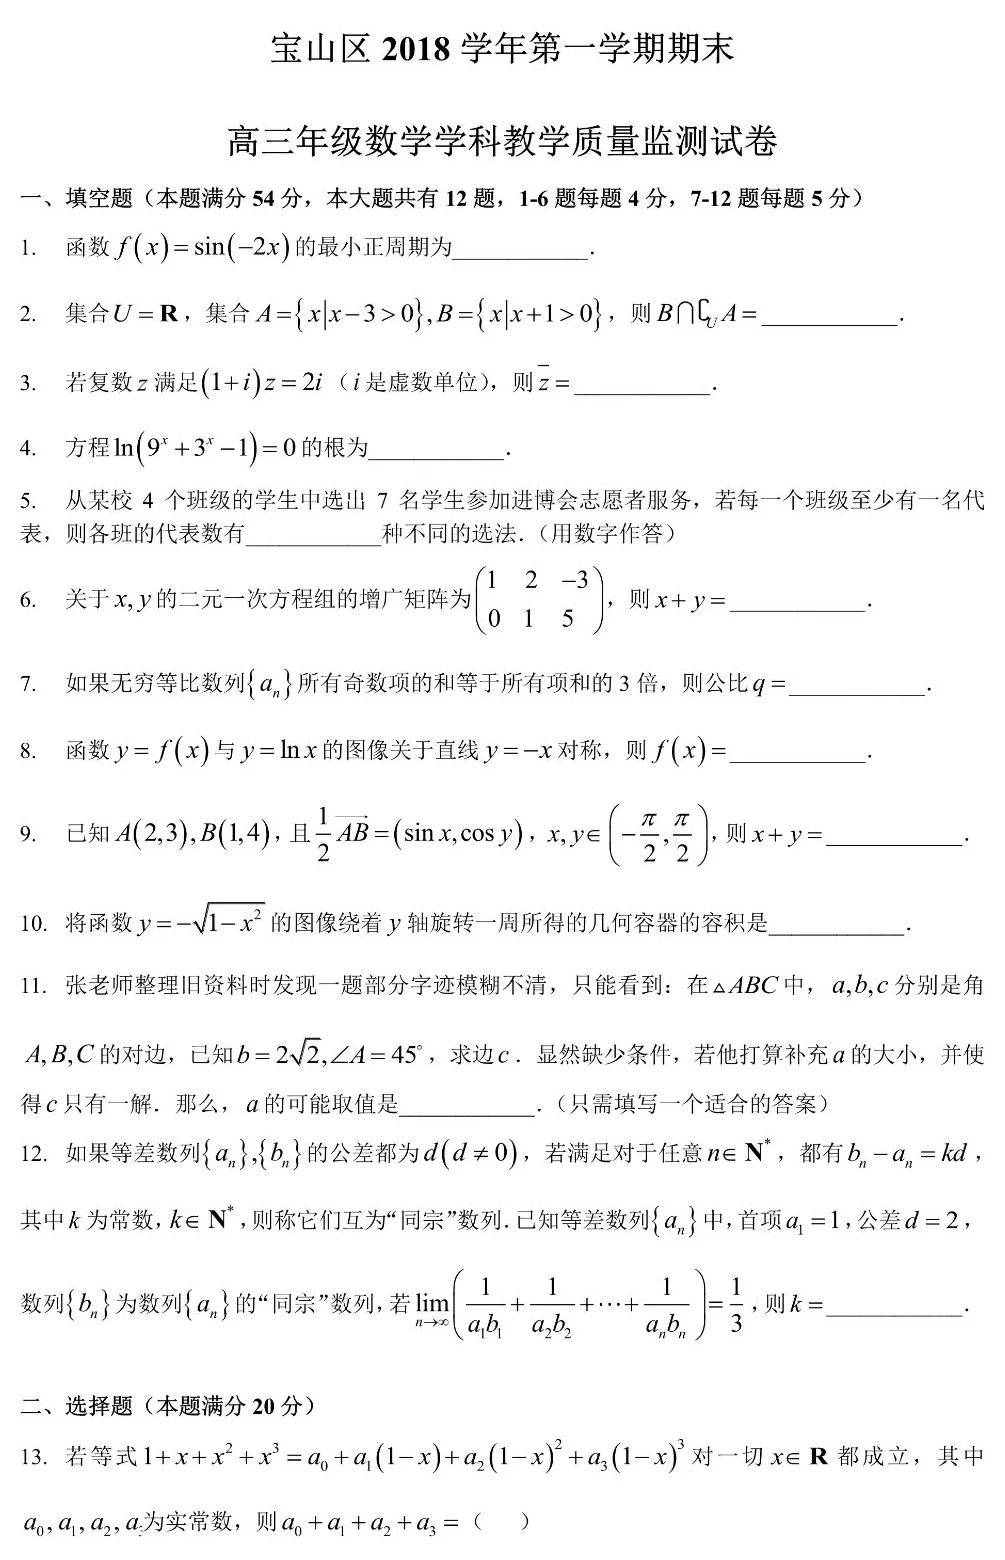 宝山区 2018 学年第一学期期末
高三年级数学学科教学质量监测试卷
一、填空题（本题满分 54 分，本大题共有 12 题，1-6 题每题 4 分，7-12 题每题 5 分）
1. 函数 f(x)=sin(−2x) 的最小正周期为____________.
2. 集合 U=R，集合 A={x|x−3>0},B={x|x+1>0}，则 B∩∁_U A=____________.
3. 若复数 z 满足(1+i)z=2i（i 是虚数单位），则 z̅=____________.
4. 方程 ln(9^x+3^x−1)=0 的根为____________.
5. 从某校 4 个班级的学生中选出 7 名学生参加进博会志愿者服务，若每一个班级至少有一名代
表，则各班的代表数有____________种不同的选法.（用数字作答）
6. 关于 x,y 的二元一次方程组的增广矩阵为 (1 2 −3; 0 1 5)，则 x+y=____________.
7. 如果无穷等比数列{a_n}所有奇数项的和等于所有项和的 3 倍，则公比 q=____________.
8. 函数 y=f(x) 与 y=ln x 的图像关于直线 y=−x 对称，则 f(x)=____________.
9. 已知 A(2,3),B(1,4)，且 1/2 AB→=(sin x,cos y)，x,y∈(−π/2,π/2)，则 x+y=____________.
10. 将函数 y=−√(1−x²) 的图像绕着 y 轴旋转一周所得的几何容器的容积是____________.
11. 张老师整理旧资料时发现一题部分字迹模糊不清，只能看到：在△ABC 中，a,b,c 分别是角
A,B,C 的对边，已知 b=2√2,∠A=45°，求边 c．显然缺少条件，若他打算补充 a 的大小，并使
得 c 只有一解．那么，a 的可能取值是____________.（只需填写一个适合的答案）
12. 如果等差数列{a_n},{b_n}的公差都为 d(d≠0)，若满足对于任意 n∈N*，都有 b_n−a_n=kd，
其中 k 为常数，k∈N*，则称它们互为“同宗”数列．已知等差数列{a_n}中，首项 a_1=1，公差 d=2，
数列{b_n}为数列{a_n}的“同宗”数列，若 lim_{n→∞}(1/(a_1b_1)+1/(a_2b_2)+⋯+1/(a_nb_n))=1/3，则 k=____________.
二、选择题（本题满分 20 分）
13. 若等式 1+x+x²+x³=a_0+a_1(1−x)+a_2(1−x)²+a_3(1−x)³ 对一切 x∈R 都成立，其中
a_0,a_1,a_2,a_3为实常数，则 a_0+a_1+a_2+a_3=（ ）